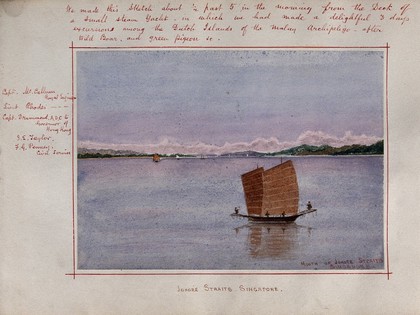 We made this Sketch about ½ past 5 in the morning from the Deck of
a small steam Yacht, in which we had made a delightful 3 days
excursions among the Dutch Islands of the Malay Archipeligo, after
Wild Boar, and green pigeon &c.
Capt. McCallum
Royal Engineers
Lieut Rhodes
Capt. Drummond, A.D.C. to
Governor of
Hong Kong
Taylor,
Civil Service
Mouth of Johore Straits
Singapore
JOHORE STRAITS. SINGAPORE.